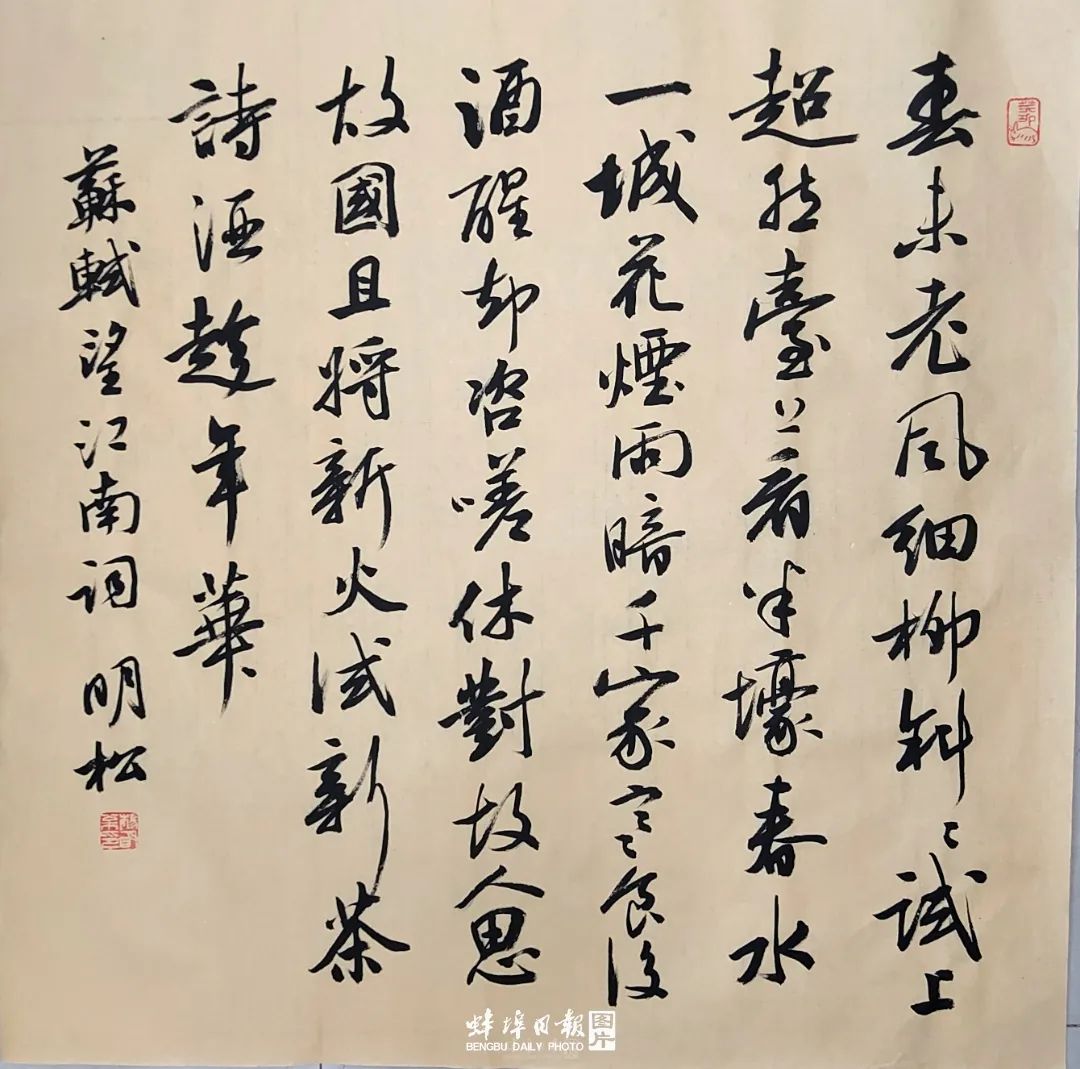 春未老風細柳斜〻試上
超然臺上看半壕春水
一城花煙雨暗千家寒食後
酒醒却咨嗟休對故人思
故國且將新火試新茶
詩酒趁年華
蘇軾望江南詞 明松
癸卯
蚌埠日報 图片
BENGBU DAILY PHOTO